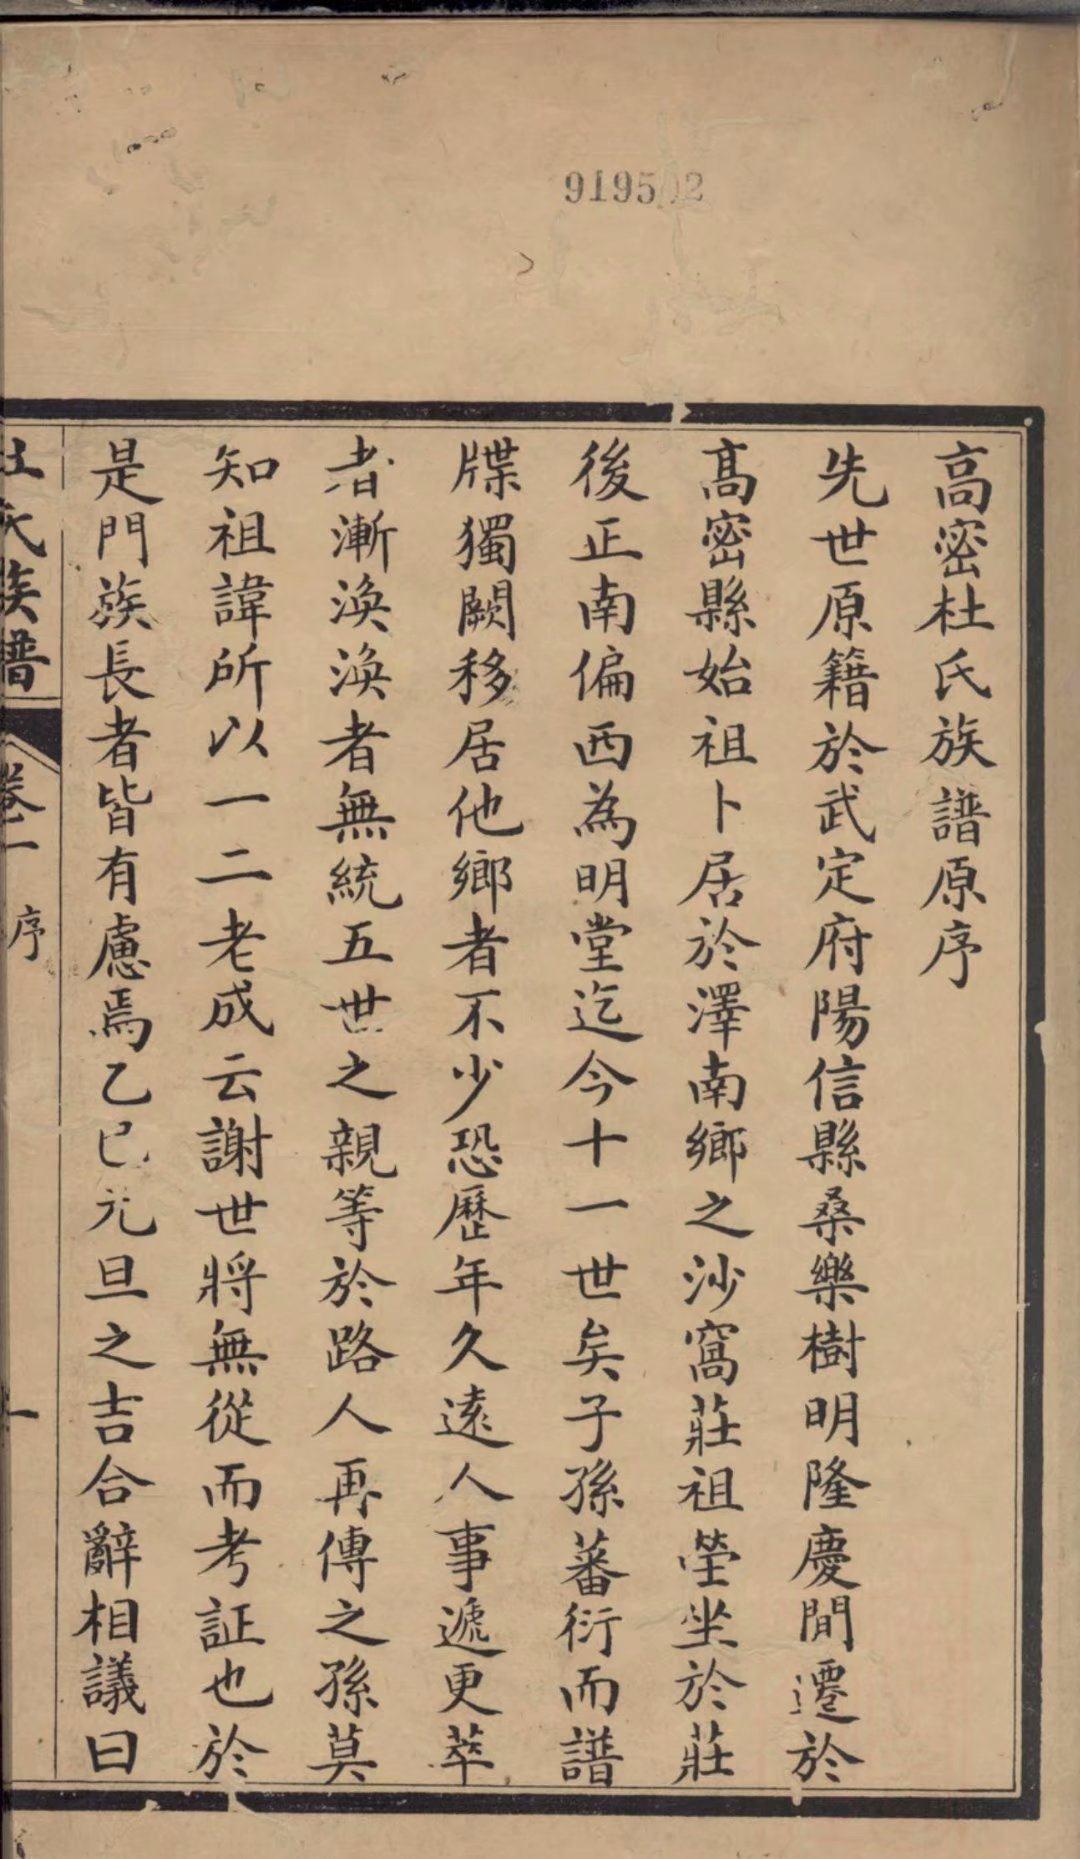 919502
高密杜氏族譜原序
先世原籍於武定府陽信縣桑樂樹明隆慶間遷於
高密縣始祖卜居於澤南鄉之沙窩莊祖塋坐於莊
後正南偏西為明堂迄今十一世矣子孫蕃衍而譜
牒獨闕移居他鄉者不少恐歷年久遠人事遞更萃
者漸渙渙者無統五世之親等於路人再傳之孫莫
知祖諱所以一二老成云謝世將無從而考証也於
是門族長者皆有慮焉乙巳元旦之吉合辭相議曰
杜氏族譜 卷一 序 一